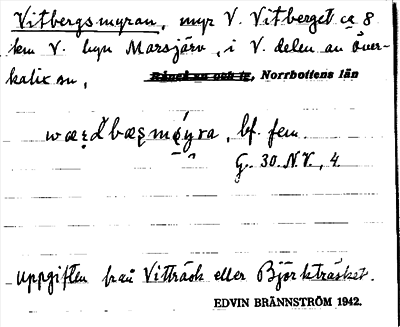 Vitbergsmyran, myr V. Vitberget ca 8
km V. byn Marsjärv, i V. delen av Över-
kalix sn, Norrbottens län
bf. fem.
G. 30. N.V., 4.
uppgiften från Vitträsk eller Björkträsket.
EDVIN BRÄNNSTRÖM 1942.